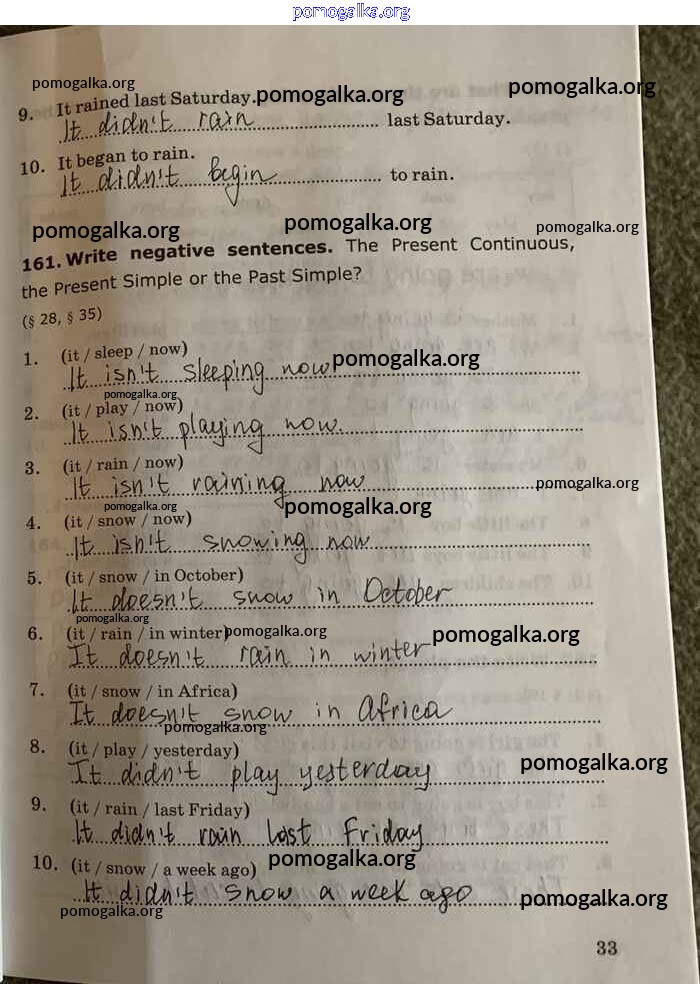 pomogalka.org
pomogalka.org pomogalka.org pomogalka.org
9. It rained last Saturday.
It didn't rain last Saturday.
10. It began to rain.
It didn't begin to rain.
pomogalka.org pomogalka.org pomogalka.org
161. Write negative sentences. The Present Continuous,
the Present Simple or the Past Simple?
(§ 28, § 35)
1. (it / sleep / now)
It isn't sleeping now pomogalka.org
pomogalka.org
2. (it / play / now)
It isn't playing now.
3. (it / rain / now)
It isn't raining now pomogalka.org
pomogalka.org pomogalka.org
4. (it / snow / now)
It isn't snowing now
5. (it / snow / in October)
It doesn't snow in October
pomogalka.org
6. (it / rain / in winter) pomogalka.org pomogalka.org
It doesn't rain in winter
7. (it / snow / in Africa)
It doesn't snow in Africa
pomogalka.org
8. (it / play / yesterday)
pomogalka.org
It didn't play yesterday
9. (it / rain / last Friday)
It didn't rain last Friday
10. (it / snow / a week ago) pomogalka.org
It didn't snow a week ago pomogalka.org
pomogalka.org
33